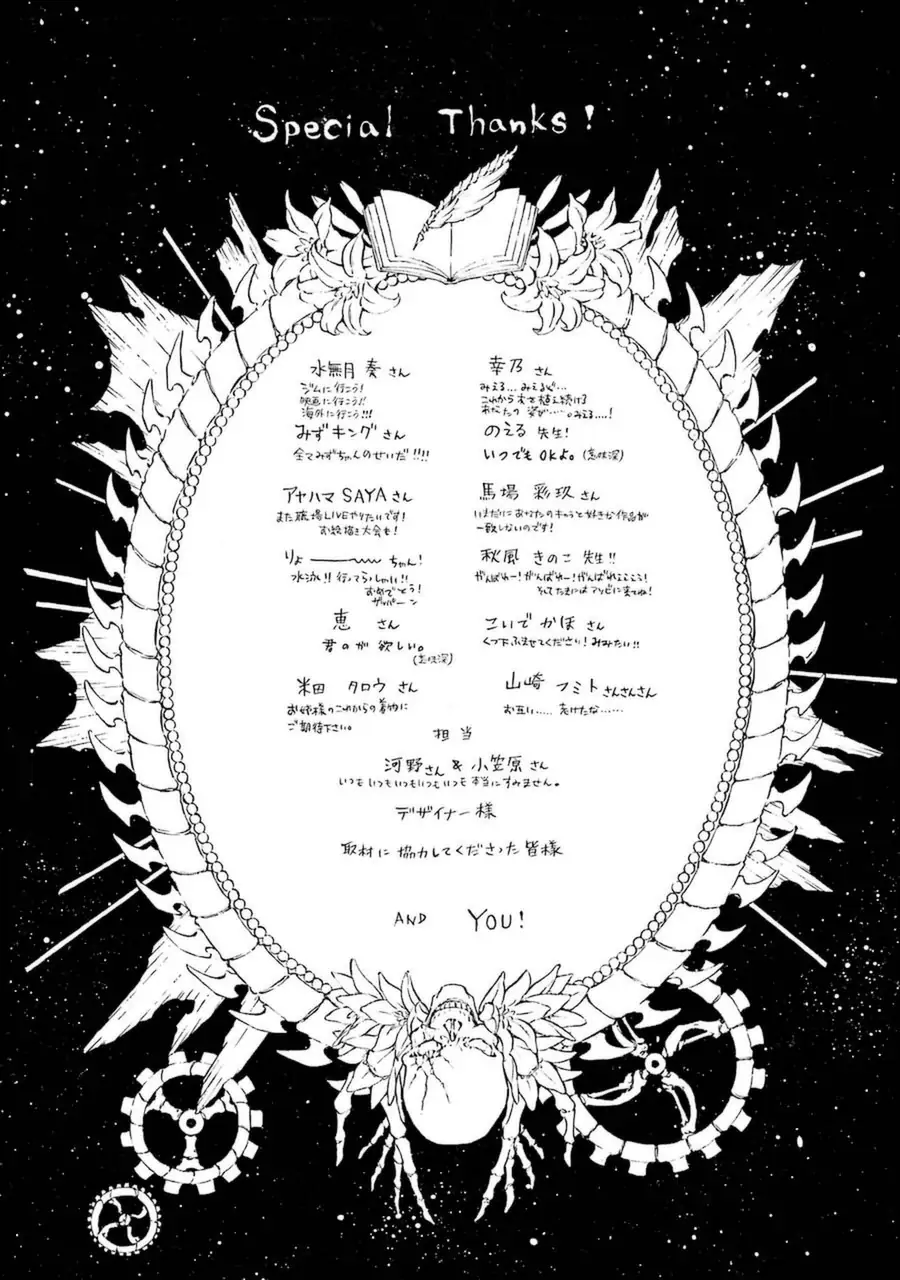 Special Thanks!
水無月 奏 さん
ジムに行こう!
映画に行こう!!
海外に行こう!!!
みずキング さん
全てみずちゃんのせいだ!!!!
アヤハマ SAYA さん
また職場LIVEやりたいです!
お絵描き大会も!
りょ〜ちゃん!
水泳!! 行ってらっしゃい!!
おめでとう!
ザッパーン
恵 さん
君のが 欲しい。
(意味深)
米田 タロウ さん
お姉様のこれからの着物に
ご期待下さい。
幸乃 さん
みえる…みえるぞ…
これから木を植え続ける
あなたの 姿が……。みえる…!
のえる 先生!
いつでも OKよ。(意味深)
馬場 彩玖 さん
いまだにあなたのキャラと好きな作品が
一致しないのです!
秋風 きのこ 先生!!
がんばれー! がんばれー! がんばれぇぇぇぇ!
そしてたまにはアソビに来てね!
こいで かほ さん
くつ下ふませてください! みみたい!!
山崎 フミト さんさんさん
お互い…… 老けたな……
担当
河野さん & 小笠原 さん
いつも いつも いつも いつも いつも 本当にすみません。
デザイナー 様
取材に 協力してくださった 皆様
AND YOU!